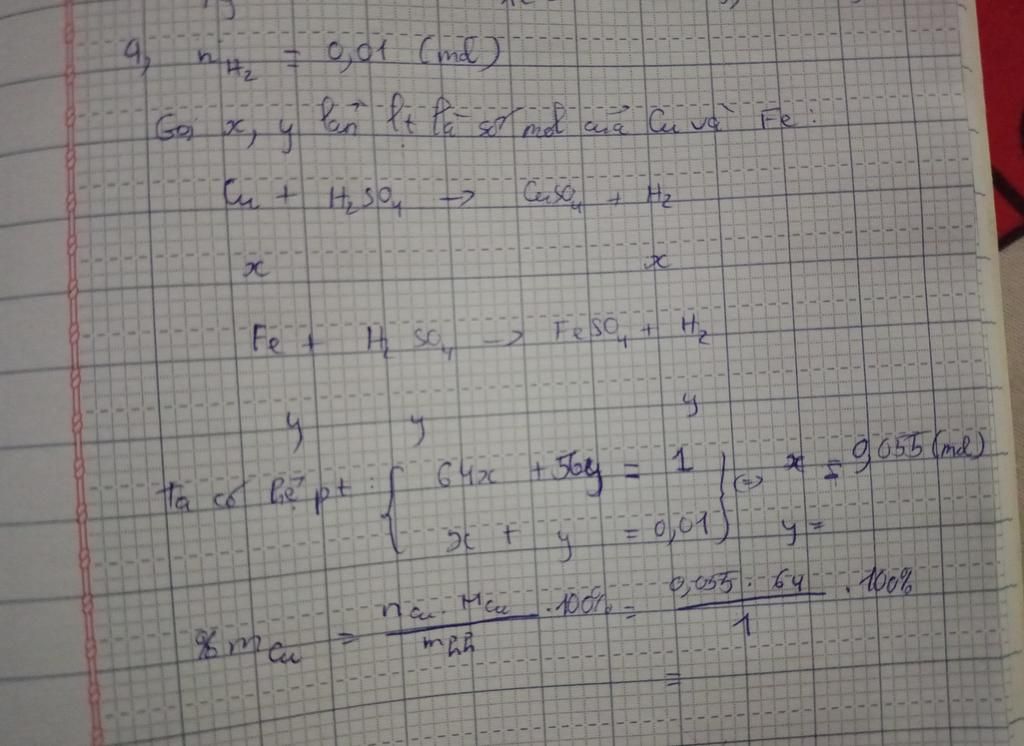 a, nH₂ = 0,01 (mol)
Gọi x, y lần lt là số mol của Cu và Fe:
Cu + H₂SO₄ → CuSO₄ + H₂
x x
Fe + H₂SO₄ → FeSO₄ + H₂
y y y
Ta có hệ pt: { 64x + 56y = 1 } <=> x = 0,055 (mol)
x + y = 0,01 y =
%mCu = nCu . MCu / mhh . 100% = 0,055 . 64 / 1 . 100%
=